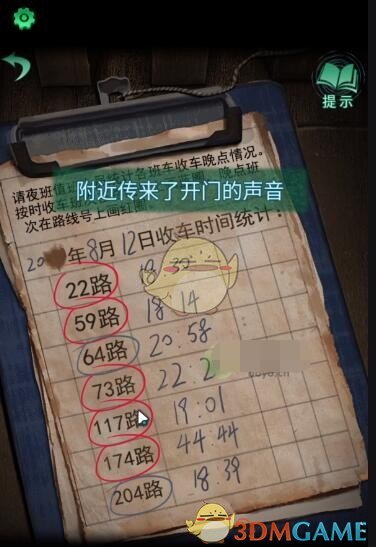 提示
请夜班值
统计各班车收车晚点情况。
附近传来了开门的声音
按时收车
晚点班
次在路线号上画红圈
20
年8月12日收车时间统计：
22路 18
59路 18:14
64路 20:58
73路 22:2
117路 19:01
174路 44:44
204路 18:39
3DMGAME